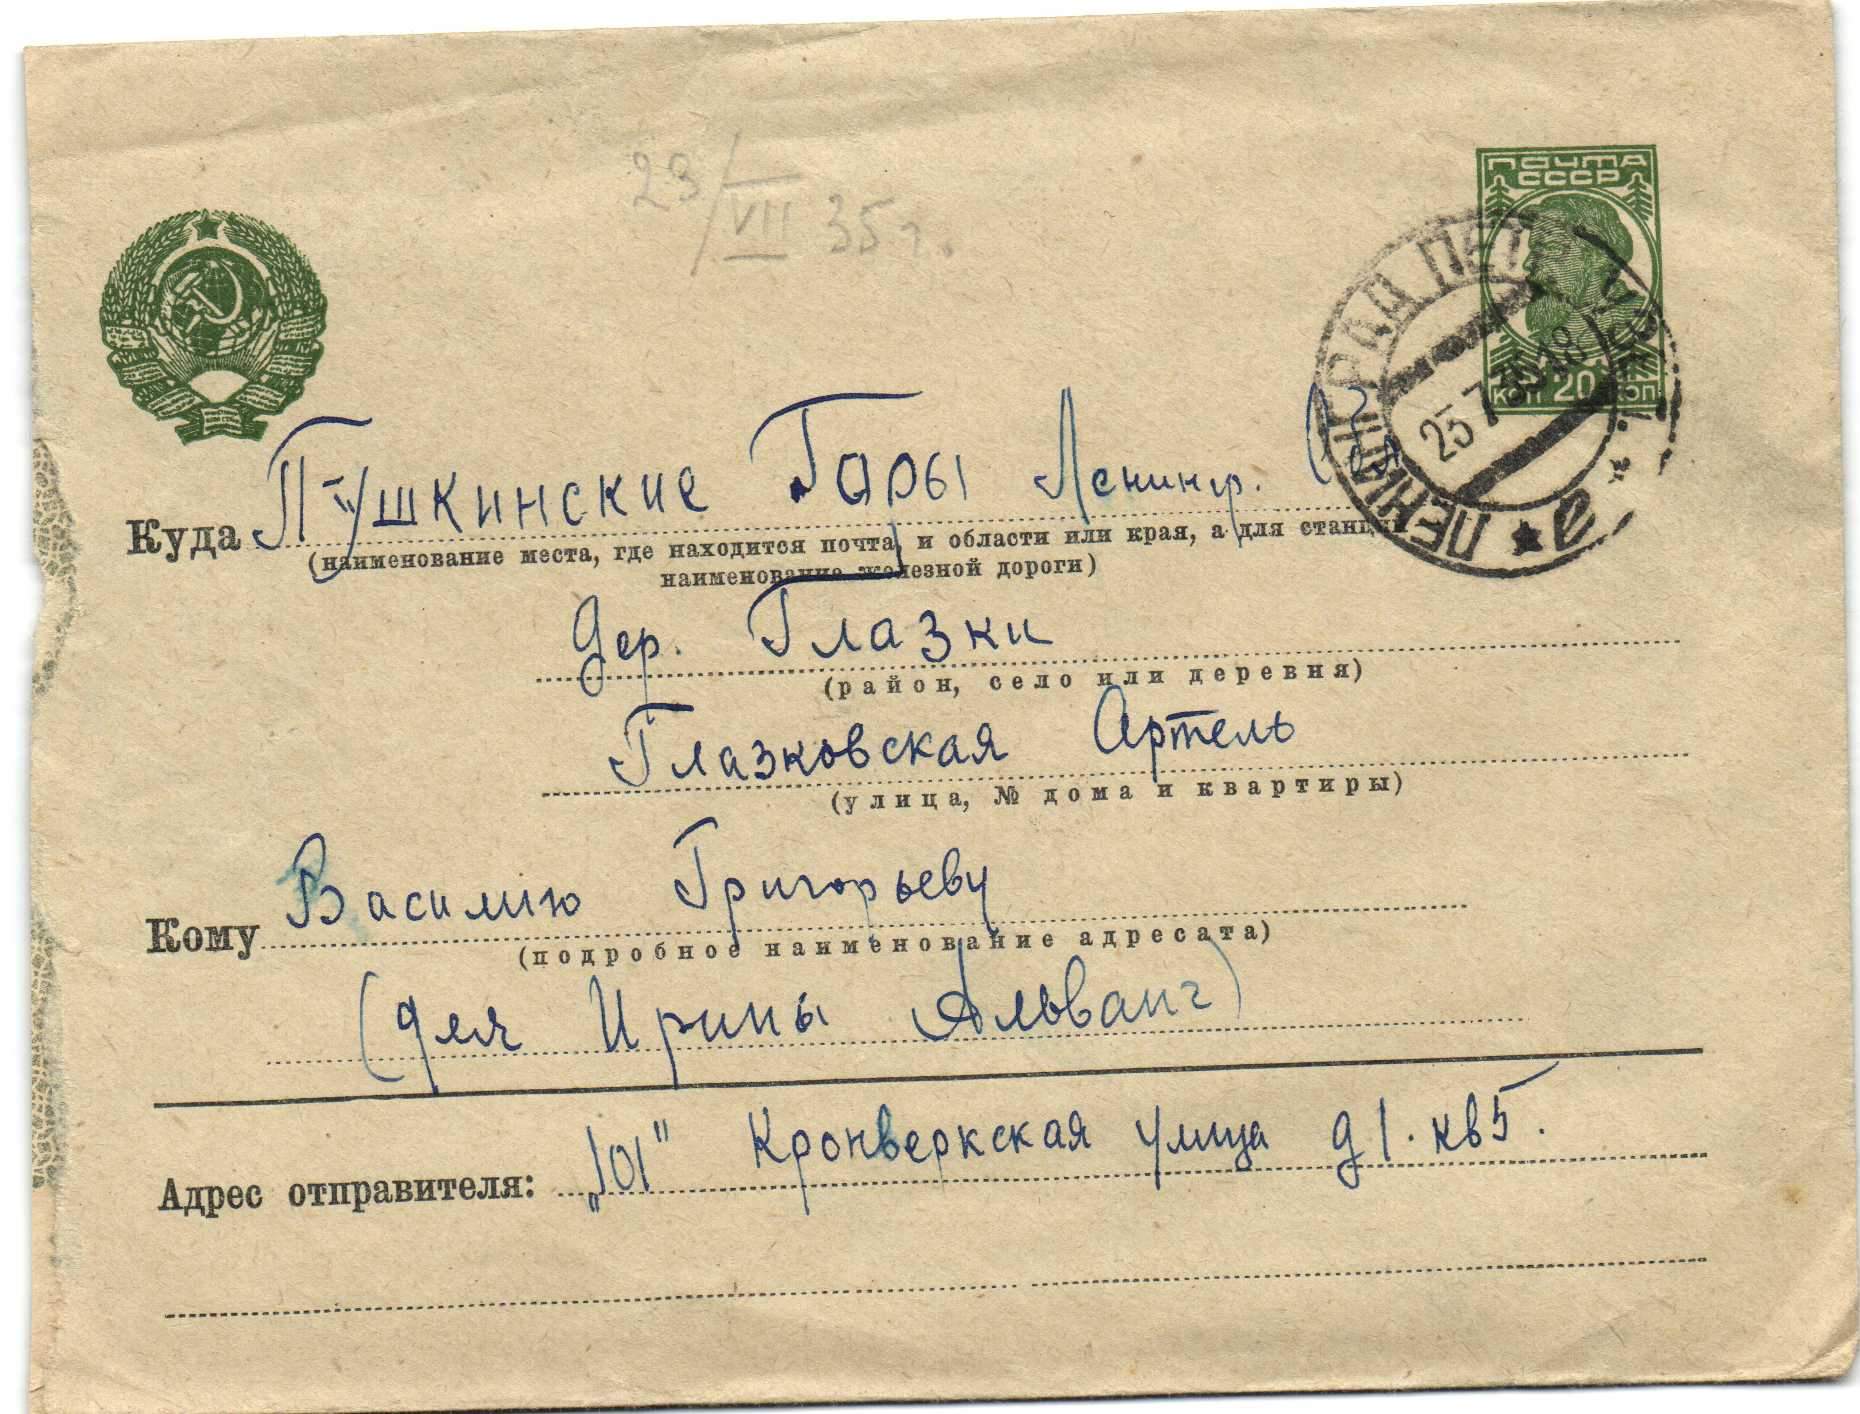 23/VII 35 г.
ПОЧТА
СССР
КОП 20 КОП
ЛЕНИНГРАД
23 7 35 18
Куда Пушкинские Горы Ленингр. Обл
(наименование места, где находится почта, и области или края, а для станции
наименование железной дороги)
дер. Глазки
(район, село или деревня)
Глазковская Артель
(улица, № дома и квартиры)
Кому Василию Григорьеву
(подробное наименование адресата)
(для Ирины Альванг)
Адрес отправителя: „101" Кронверкская улица д 1. кв 5.